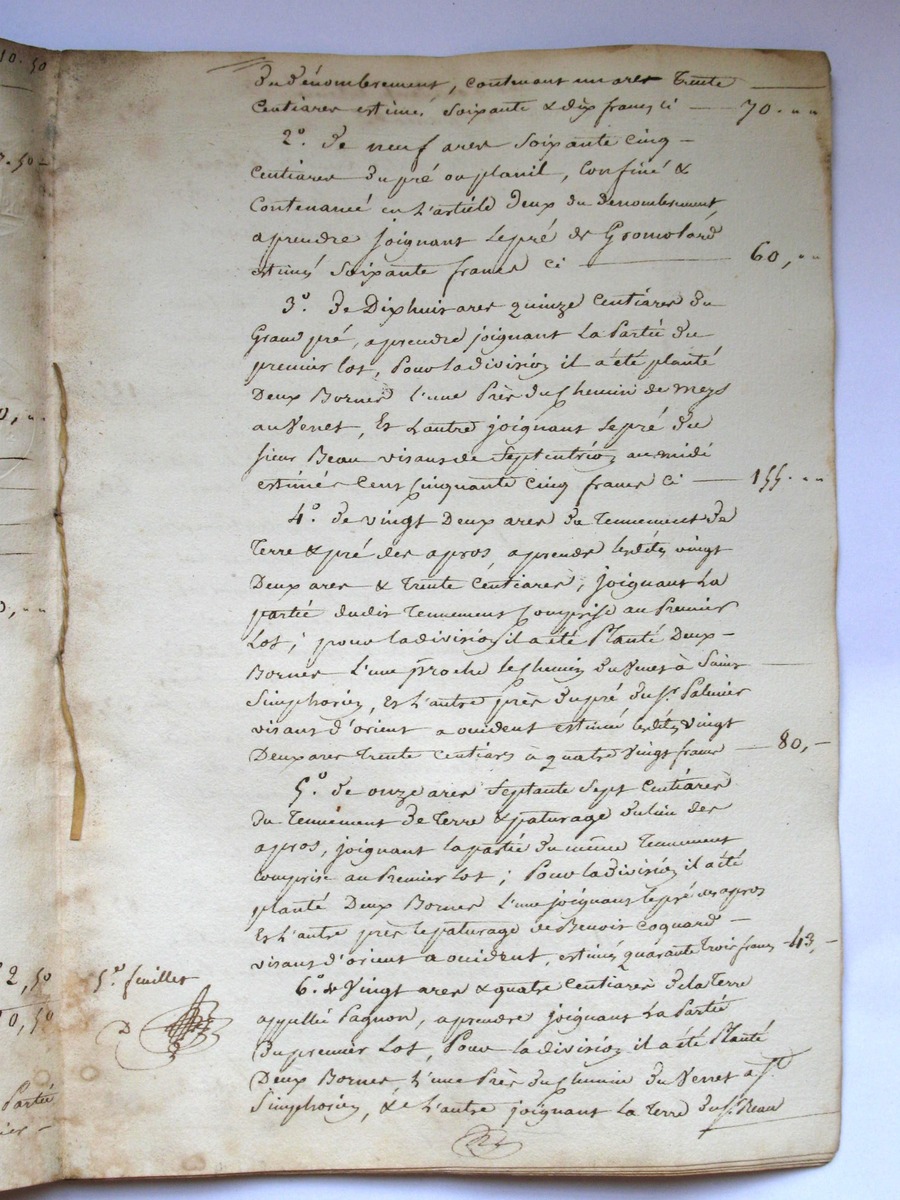 10.50
du dénombrement, contenant un are Trente
Centiares estimés Soixante & dix francs ci — 70. „„
2°. de neuf ares Soixante Cinq -
Centiares du pré ou planil, Confiné &
Contenancé en L'article Deux du denombrement
a prendre joignant le pré de Gromolard
estimés Soixante francs ci — 60, „„
3°. de Dixhuit ares quinze Centiares du
Grand pré, a prendre joignant La Partie du
premier Lot, Pour la division il a été planté
Deux Bornes L'une Près du Chemin de Meys
au Verret, Et L'autre joignant le pré du
sieur Beau visans de Septentrion au midi
estimés Cent Cinquante Cinq francs ci — 155. „„
4°. de vingt Deux ares du Tennement de
Terre & pré des apros, a prendre lesdits vingt
Deux ares & Trente Centiares, joignant La
partie dudit Tennement Comprise au Premier
Lot; pour la division il a été Planté Deux -
Bornes L'une proche le Chemin du Verret à Saint
Simphorien, Et L'autre près du pré du Sr. Palmier
visans d'orient a occident estimés lesdits vingt
Deux ares Trente Centiares à quatre Vingt francs — 80, -
5°. de onze ares Septante Sept Centiares
du Tennement de Terre & paturage du lieu des
apros, joignant la partie du même Tennement
comprise au Premier Lot; Pour la division il a été
planté Deux Bornes L'une joignant le pré des apros
Et L'autre près le paturage de Benoit Coquard -
visans d'orient a occident, estimés quarante Trois francs - 43, -
5°. feuillet
6°. de Vingt ares & quatre Centiares de la Terre
appellée Pagnon, a prendre joignant La Partie
du premier Lot, Pour la division il a été Planté
Deux Bornes, L'une Près du Chemin du Verret à St.
Simphorien, & L'autre joignant la Terre du Sr. Beau
2,50
0,50
Partie